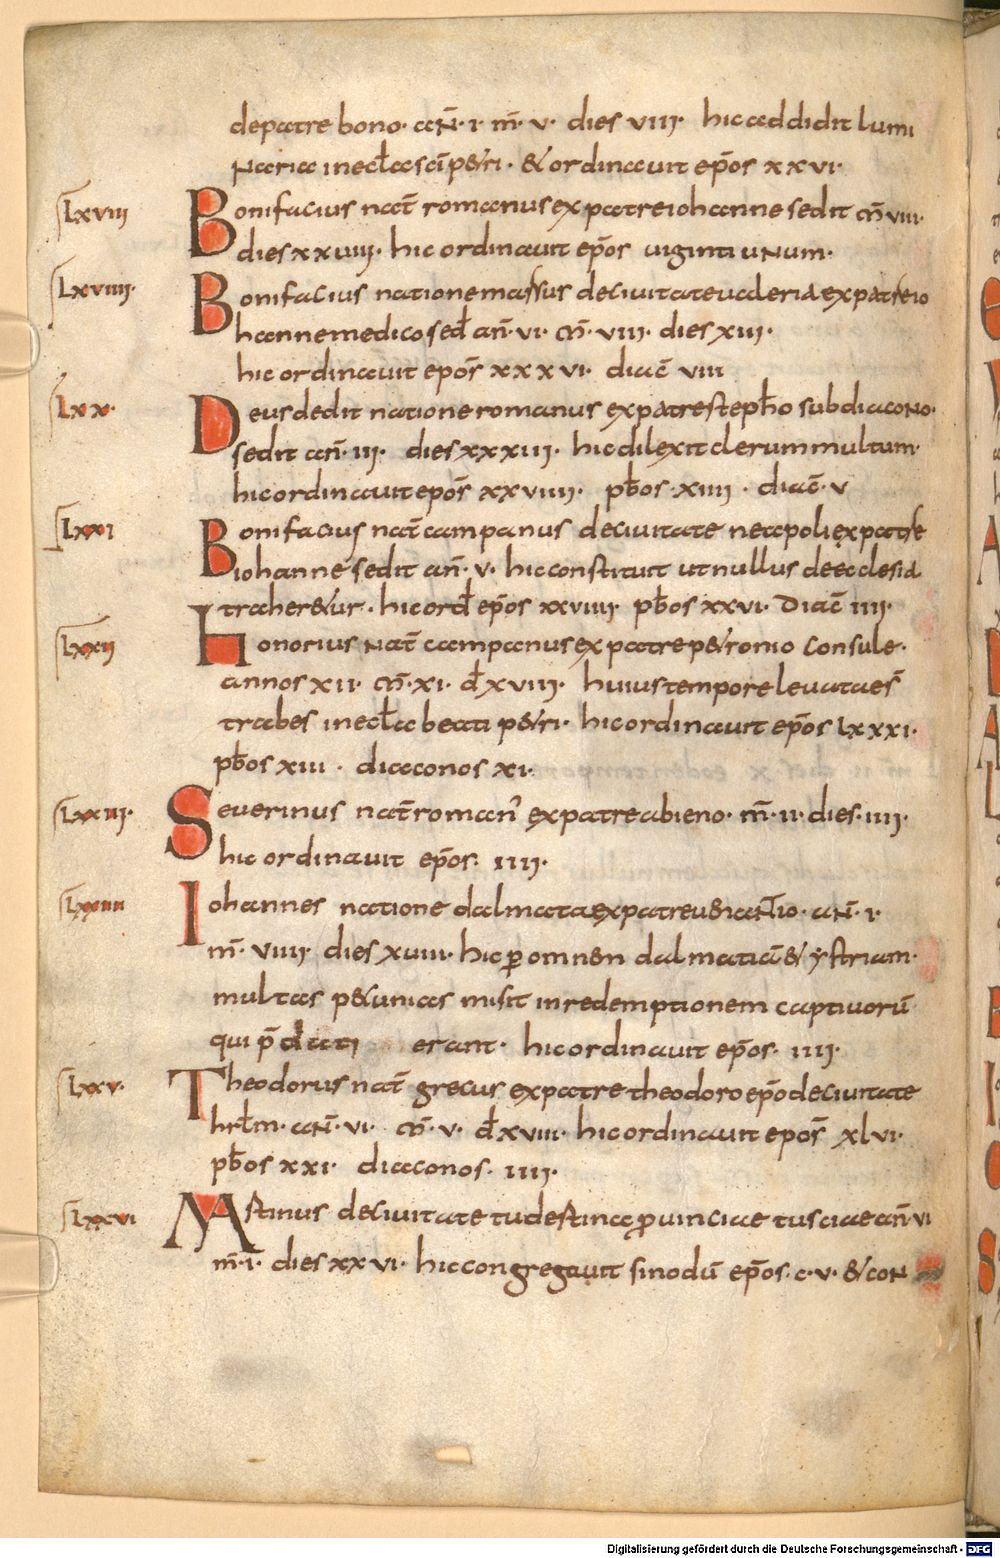 de patre bono. an̄. i. m̄. v. dies viii. hic addidit lumi
naria in eccl̄a sc̄i petri. & ordinavit ep̄os xxvi.
Lxviii Bonifacius nat̄ romanus ex patre iohanne sedit m̄ viii.
dies xxviii. hic ordinavit ep̄os viginti unum.
Lxviiii. Bonifacius natione massus de civitate valeria ex patre io
hanne medico sed̄ an̄. vi. m̄. viii. dies xiii.
hic ordinavit epos̄ xxxvi. diac̄ viii
Lxx. Deusdedit natione romanus ex patre steph̄o subdiacono.
sedit an̄. iii. dies xxxiii. hic dilexit clerum multum.
hic ordinavit epos̄ xxviiii. pb̄os. xiiii. diac̄. v
Lxxi Bonifacius nat̄ campanus de civitate neapoli ex patre
iohanne sedit an̄. v. hic constituit ut nullus de ecclesia
traher&ur. hic ord̄ ep̄os xxviiii. pb̄os xxvi. diac̄ iiii.
Lxxii Honorius nat̄ campanus ex patre p&ronio consule.
annos xii. m̄. xi. d̄ xviii. huius tempore levatae s̄
trabes in eccl̄a beati p&ri. hic ordinavit ep̄os Lxxxi.
pb̄os xiii. diaconos xi.
Lxxiii. Severinus nat̄ roman᾽ ex patre abieno. m̄. ii. dies. iiii.
hic ordinavit ep̄os. iiii.
Lxxiiii Iohannes natione dalmata ex patre venantio. an̄. i.
m̄. viiii. dies xviii. hic ꝑ omnen dalmatiā & ystriam.
multas pecunias misit in redemptionem captivorū
qui p̄dati erant. hic ordinavit ep̄os. iiii.
Lxxv. Theodorus nat̄ grecus ex patre theodoro ep̄o de civitate
hrl̄m. an̄. vi. m̄. v. d̄ xviii. hic ordinavit epos̄ xlvi.
pb̄os xxi. diaconos. iiii.
Lxxvi Mastinus de civitate tudestina ꝓvinciae tusciae an̄. vi
m̄. i. dies xxvi. hic congregavit sinodū ep̄os. c.v. & con
Digitalisierung gefördert durch die Deutsche Forschungsgemeinschaft - DFG